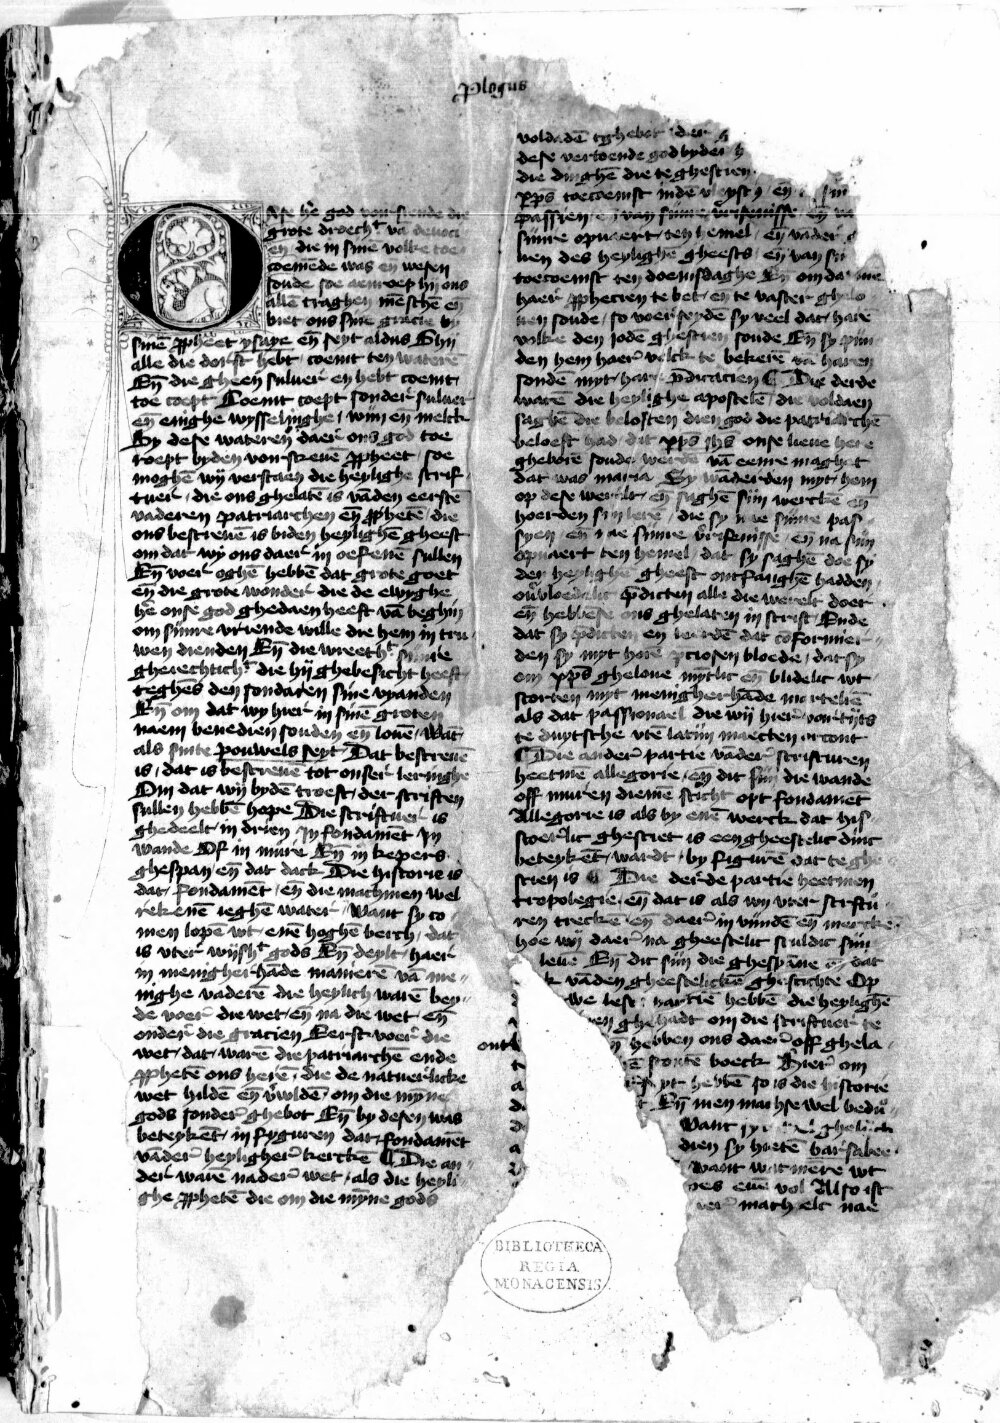 Prologus
Onse he᷑ god voirsiende die
grote droech᷑ vā deuoci
en die in sine volke toe
comēde was eñ wesen
soude soe aenroep hij ons
allē traghen mēschē eñ
biet ons sine gracie by
sinē ꝓpheet ysaye eñ seyt aldus Ghij
alle die dorst hebt, coemt ten waterē
Eñ die gheen suluer en hebt coemt,
toe coept Coemt coept sonder suluer
eñ enighe wysselinghe, wijn en melck
By dese wateren daer ons god toe
roept byden voirscreuē ꝓpheet, soe
moghē wij verstaen die heylighe scrif-
tuer, die ons ghelatē is vādē eerstē
vaderen patriarchen eñ ꝓphetē, die
ons bescreuē is biden heylighē gheest
om dat wy ons daer in oefenē sullen
Eñ voer oghē hebbē dat grote goet
eñ die grote wonder die de ewighe
he᷑ onse god ghedaen heeft vā beghin
om sijnre vriende wille die hem in tru
wen dienden Eñ die wreeth᷑ sijnre
gherechtich᷑ die hij ghebesicht heeft
teghēs den sondaren sine vyanden
Eñ om dat wy hier in sinē groten
naem benedien souden eñ louē, Wāt
als sinte pouwels seyt Dat bescreuē
is, dat is bescreuē tot onser leringhe
Om dat wij bydē troest, der scriften
sullen hebbē hope Die scriftuer is
ghedeelt in drien, In fondamēt In
wande Of in mure Eñ in kepers
ghespan, eñ dat dack Die historie is
dat, fondamēt, eñ die machmen wel
rekenē ieghē water, Want sy co-
men lopē wt, enē hoghē berch, dat
is vter wijsh᷑ gods Eñ deylt, haer
in menigherhāde manierē vā me-
nighe vaderē die heylich warē bey-
de voer die wet, eñ na die wet, eñ
onder die gracien Eerst voer die
wet, dat, warē die patriarchē ende
ꝓphetē ons herē, die de natuerlicke
wet hildē eñ v᷑wldē, om die mynē
gods sonder ghebot Eñ by desen was
beteykēt, in fyguren dat fondamēt
vāder heyligher kerckē ⸿ Die an-
der warē nader wet, als die heyli-
ghe ꝓphetē die om die mynē gods
voldadē tghebot der
dese vertoende god byder h
die dinghē die te ghescien
xp̄s toecoemst inde vleysch, eñ sijn
passien eñ van sijnre v᷑risenisse, eñ va
sijnre opuaert, ten hemel, eñ vader
uen des heylighē gheests, eñ van sij
toecoemst ten doemsdaghe Eñ om dat me
haer ꝓphecien te bet, eñ te vaster ghelo
uen soude, so voerseydē sy veel dat, harē
volke den iodē ghescien soude Eñ sy pijn
den hem haer volck te bekerē vā haren
sondē myt, har p̄dicacien ⸿ Die derde
warē die heylighe apostelē, die voldaen
saghē die beloften dien god die patriarchē
beloeft had, dit xp̄s ih̄s onse lieue here
gheborē soude werdē vā eenre maghet
dat was maria Sy waderden myt, hem
op dese werelt, eñ saghē sijn werckē eñ
hoerden sijn lerē, die sy nae sijnre pas-
syen, eñ nae sijnre v᷑risenisse, eñ na sijn
opuaert ten hemel, dat sy saghē doe sy
den heylighē gheest ontfanghē hadden
ou᷑vloedelic p̄dicten alle die werelt doer
eñ hebbēse ons ghelaten in scrift Ende
dat sy p̄dicten en leerdē dat cōformier-
den sy myt horē p̄ciosen bloedie, dat sy
om xp̄s gheloue mytlic eñ blidelic wt
storten myt menigherhāde martelien
als dat passionael die wij hier, voirtijts
te duytsche vte latin maecten orcont
⸿ Die ander partie vader scrifturen
heetme allegorie, eñ dit sijn die wande
off muren diemē sticht opt fondamēt
Allegorie is als by enē werck dat his-
toerlic ghesciet is een gheestelic dinc
beteykēt, wardt, by figurē dat teghe
scien is ⸿ Die derde partie heetmen
tropolegie, eñ dat is als wij vter scriftu-
ren treckē, eñ daer in vindē eñ mercke
hoe wij daer na gheestelic sculdic sijn
leue Eñ dit sijn die ghespāne dat
vādē gheestelickē ghestichte Op
we leste partie hebbē die heylighē
ghehadt om die scriftuer te
ont hebben ons daer off ghela-
sonte boeck Hier om
seyt hebbē so is die historie
Eñ men machse wel bedu
Want sy ghelijck
dien sy hietē barsabee
want watmere wt
enē vol Also ist
mach elc nae
BIBLIOTHECA
REGIA
MONACENSIS